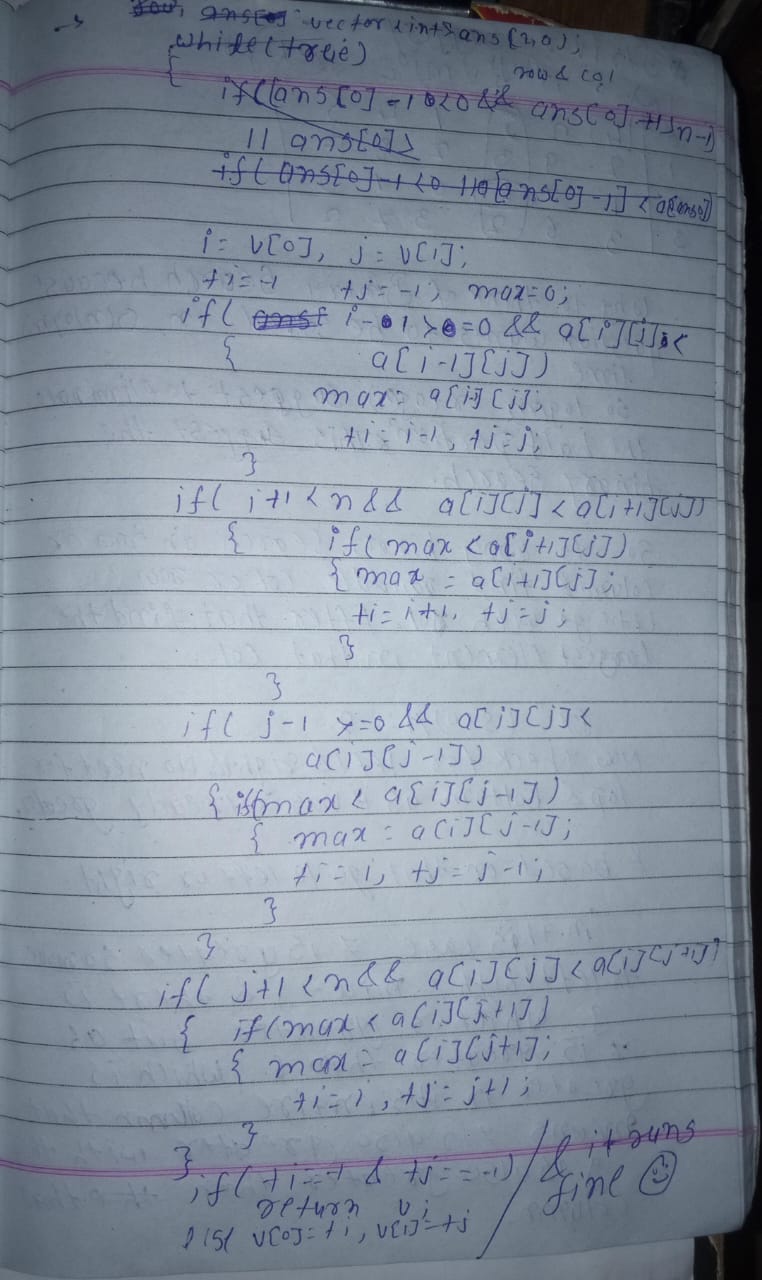 → vector<int> ans(2,0);
while(true)
row & col
{
if((ans[0]-1<0 && ans[0]+1≤n-1
|| ans[0]>
if(ans[0]-1<0 ||a[ans[0]-1]<a[ans[0]]
i= v[0], j= v[1];
ti=-1 tj=-1, max=0;
if( i-1>=0 && a[i][j]<
{ a[i-1][j])
max= a[i-1][j];
ti=i-1, tj=j;
}
if( i+1<n && a[i][j]<a[i+1][j])
{ if(max<a[i+1][j])
{ max = a[i+1][j];
ti= i+1, tj=j;
}
}
if( j-1 >=0 && a[i][j]<
a[i][j-1])
{ if(max< a[i][j-1])
{ max = a[i][j-1];
ti=i, tj=j-1;
}
}
if( j+1<n && a[i][j]<a[i][j+1])
{ if(max<a[i][j+1])
{ max = a[i][j+1];
ti=i, tj=j+1;
}
}
if(ti==-1 & tj==-1)
return v;
else v[0]=ti, v[1]=tj
& it runs
fine